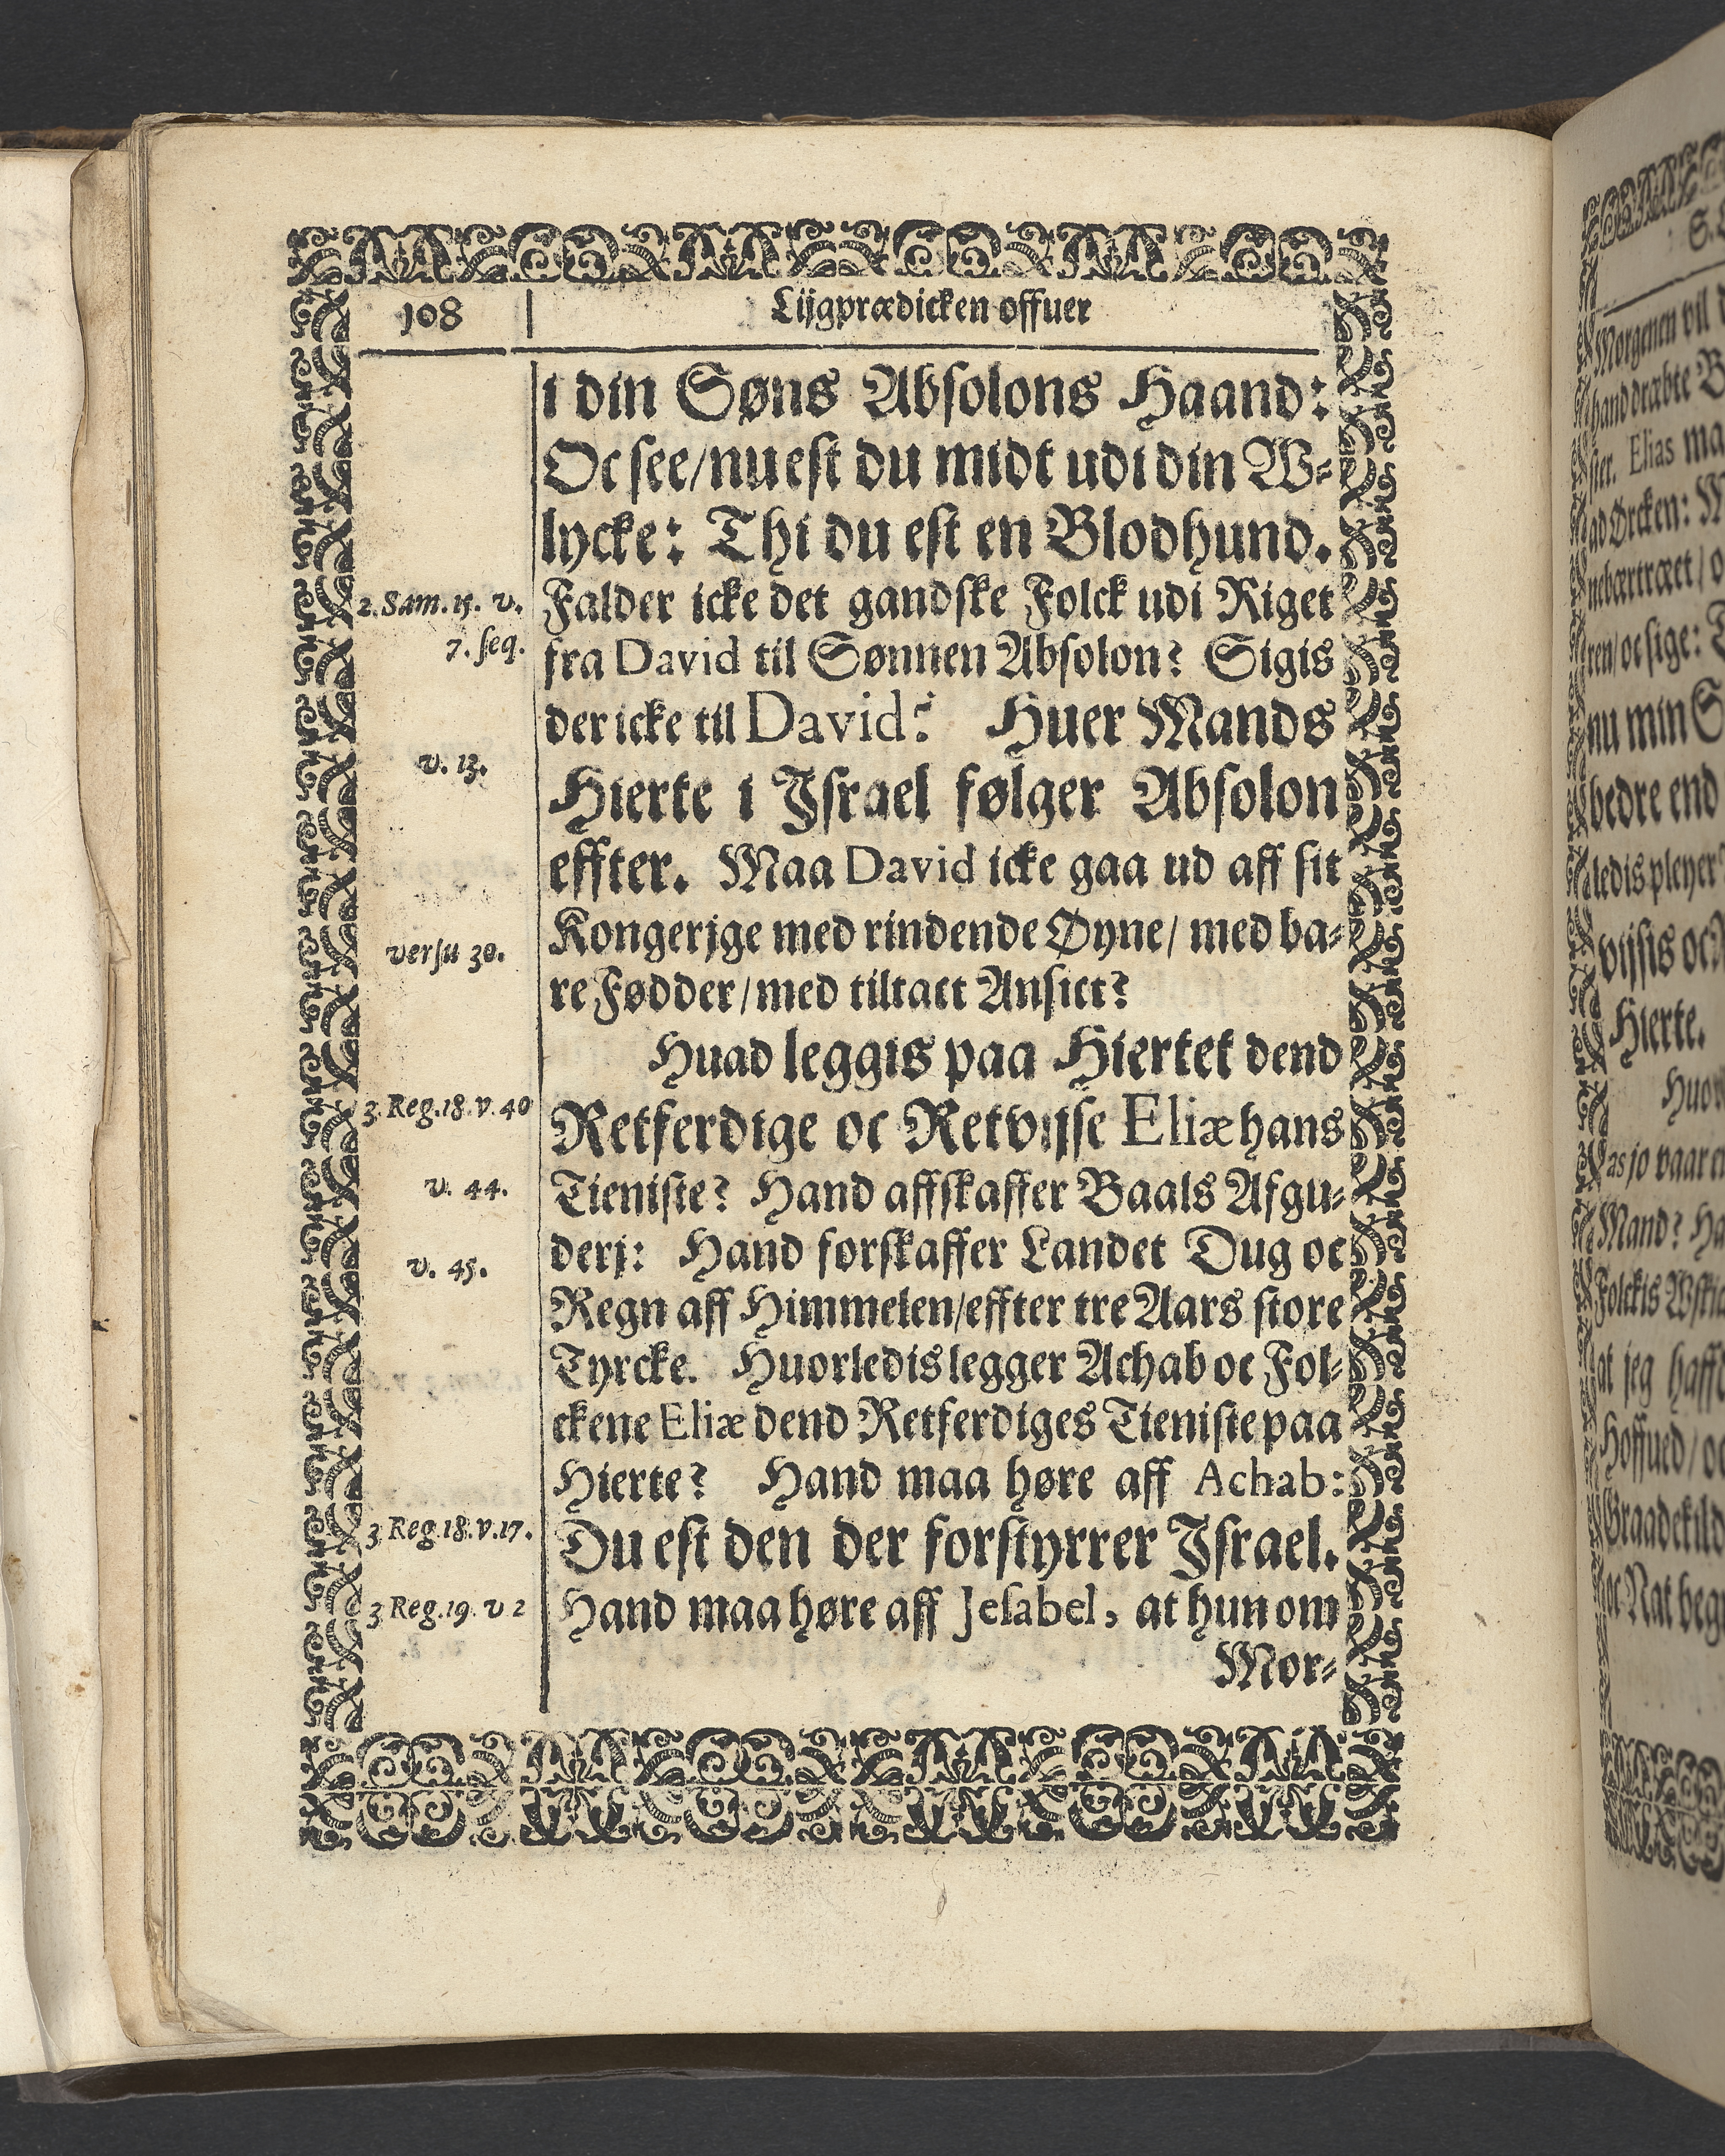 108
Lijgprædicken offuer
i din Søns Absolons Haand:
Oc see/nu est du midt udi din W-
lycke: Thi du est en Blodhund.
2. Sam. 15. v.
7. seq.
Falder icke det gandske Folck udi Riget
fra David til Sønnen Absolon? Sigis
der icke til David? Huer Mands
v. 13.
Hierte i Israel følger Absolon
effter. Maa David icke gaa ud aff sit
versu 30.
Kongerjge med rindende Øyne/ med ba-
re Fødder/med tiltact Ansict?
Huad leggis paa Hiertet dend
3. Reg. 18. v. 40
Retferdige oc Retvijse Eliæ hans
v. 44.
Tieniste? Hand affskaffer Baals Afgu-
derj: Hand forskaffer Landet Dug oc
v. 45.
Regn aff Himmelen/effter tre Aars store
Tyrcke. Huorledis legger Achab oc Fol-
ckene Eliæ dend Retferdiges Tieniste paa
Hierte? Hand maa høre aff Achab:
3 Reg. 18. v. 17.
Du est den der forstyrrer Israel.
3 Reg. 19. v 2
Hand maa høre aff Jesabel, at hun om
Mor-
Morgenen vil
hand dræbte
ster. Elias
ad Ørcken:
ren/ oc sige:
nu min
bedre end
ledis pleyer
vijsis oc
Hierte.
as jo vaar
Mand?
Folckis
at jeg
Hoffued/ oc
oc Nat